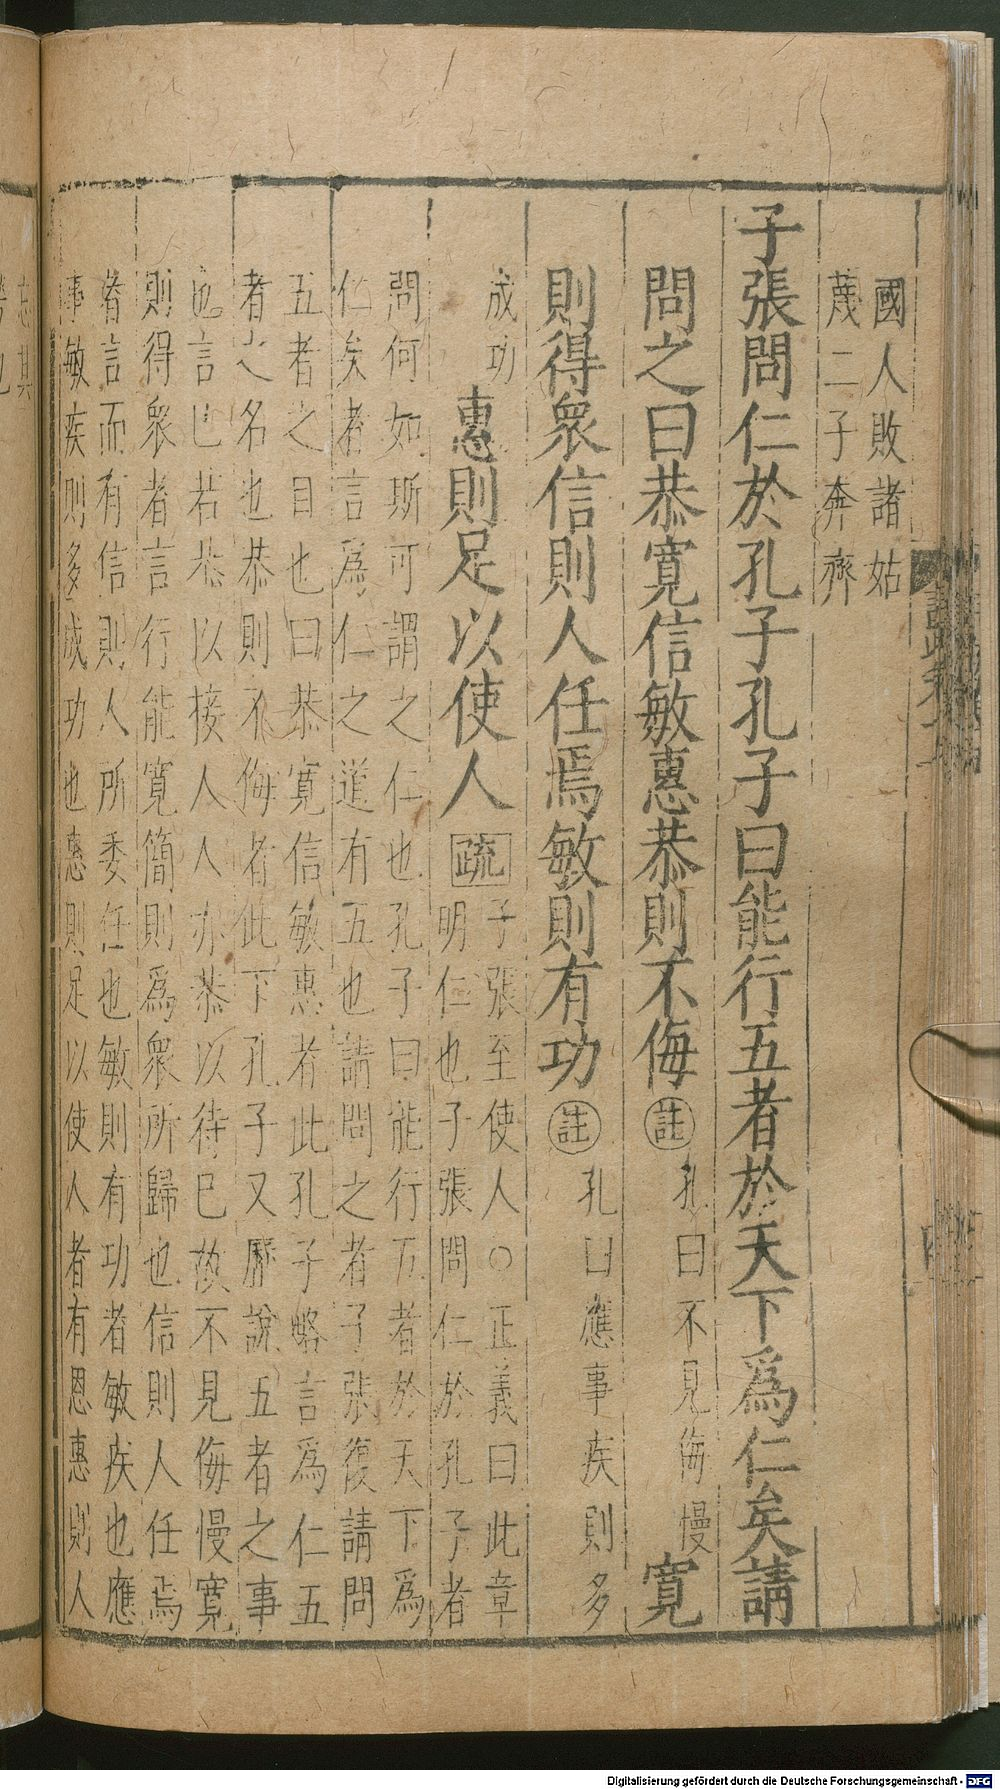 國人敗諸姑
蔑二子奔齊
子張問仁於孔子孔子曰能行五者於天下爲仁矣請
問之曰恭寛信敏惠恭則不侮
註
孔曰不見侮慢
寛
則得衆信則人任焉敏則有功
註
孔曰應事疾則多
成功
惠則足以使人
疏
子張至使人○正義曰此章
明仁也子張問仁於孔子者
問何如斯可謂之仁也孔子曰能行五者於天下爲
仁矣者言爲仁之道有五也請問之者子張復請問
五者之目也曰恭寛信敏惠者此孔子略言爲仁五
者之名也恭則不侮者此下孔子又歷說五者之事
也言己若恭以接人人亦恭以待己故不見侮慢寛
則得衆者言行能寛簡則爲衆所歸也信則人任焉
者言而有信則人所委任也敏則有功者敏疾也應
事敏疾則多成功也惠則足以使人者有恩惠則人
Digitalisierung gefördert durch die Deutsche Forschungsgemeinschaft - DFG